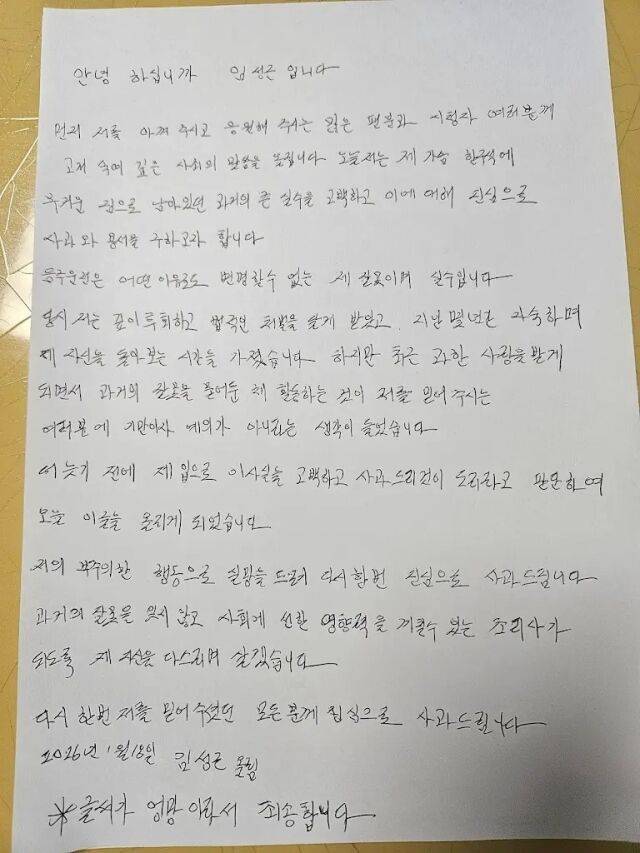 안녕 하십니까 임성근 입니다
먼저 저를 아껴 주시고 응원해 주시는 많은 팬분과 시청자 여러분께
고개 숙여 깊은 사죄의 말씀을 올립니다 오늘 저는 제 가슴 한구석에
무거운 짐으로 남아있던 과거의 큰 실수를 고백하고 이에 대해 진심으로
사과와 용서를 구하고자 합니다
음주운전은 어떤 이유로도 변명할수 없는 제 잘못이며 실수입니다
당시 저는 깊이 후회하고 법적인 처벌을 달게 받았고. 지난 몇년간 자숙하며
제 자신을 돌아보는 시간을 가졌습니다 하지만 최근 과한 사랑을 받게
되면서 과거의 잘못을 묻어둔 채 활동하는 것이 저를 믿어 주시는
여러분에 기만이자 예의가 아니라는 생각이 들었습니다
더 늦기 전에 제 입으로 이사실을 고백하고 사과드리것이 도리라고 판단하여
오늘 이글을 올리게 되었습니다
저의 부주의한 행동으로 실망을 드려 다시한번 진심으로 사과드립니다
과거의 잘못을 잊지 않고 사회에 선한 영향력을 끼칠수 있는 조리사가
되도록 제 자신을 다스리며 살겠습니다
다시 한번 저를 믿어 주셨던 모든분께 진심으로 사과드립니다
2026년 1월 18일 임성근 올림
※글씨가 엉망이라서 죄송합니다